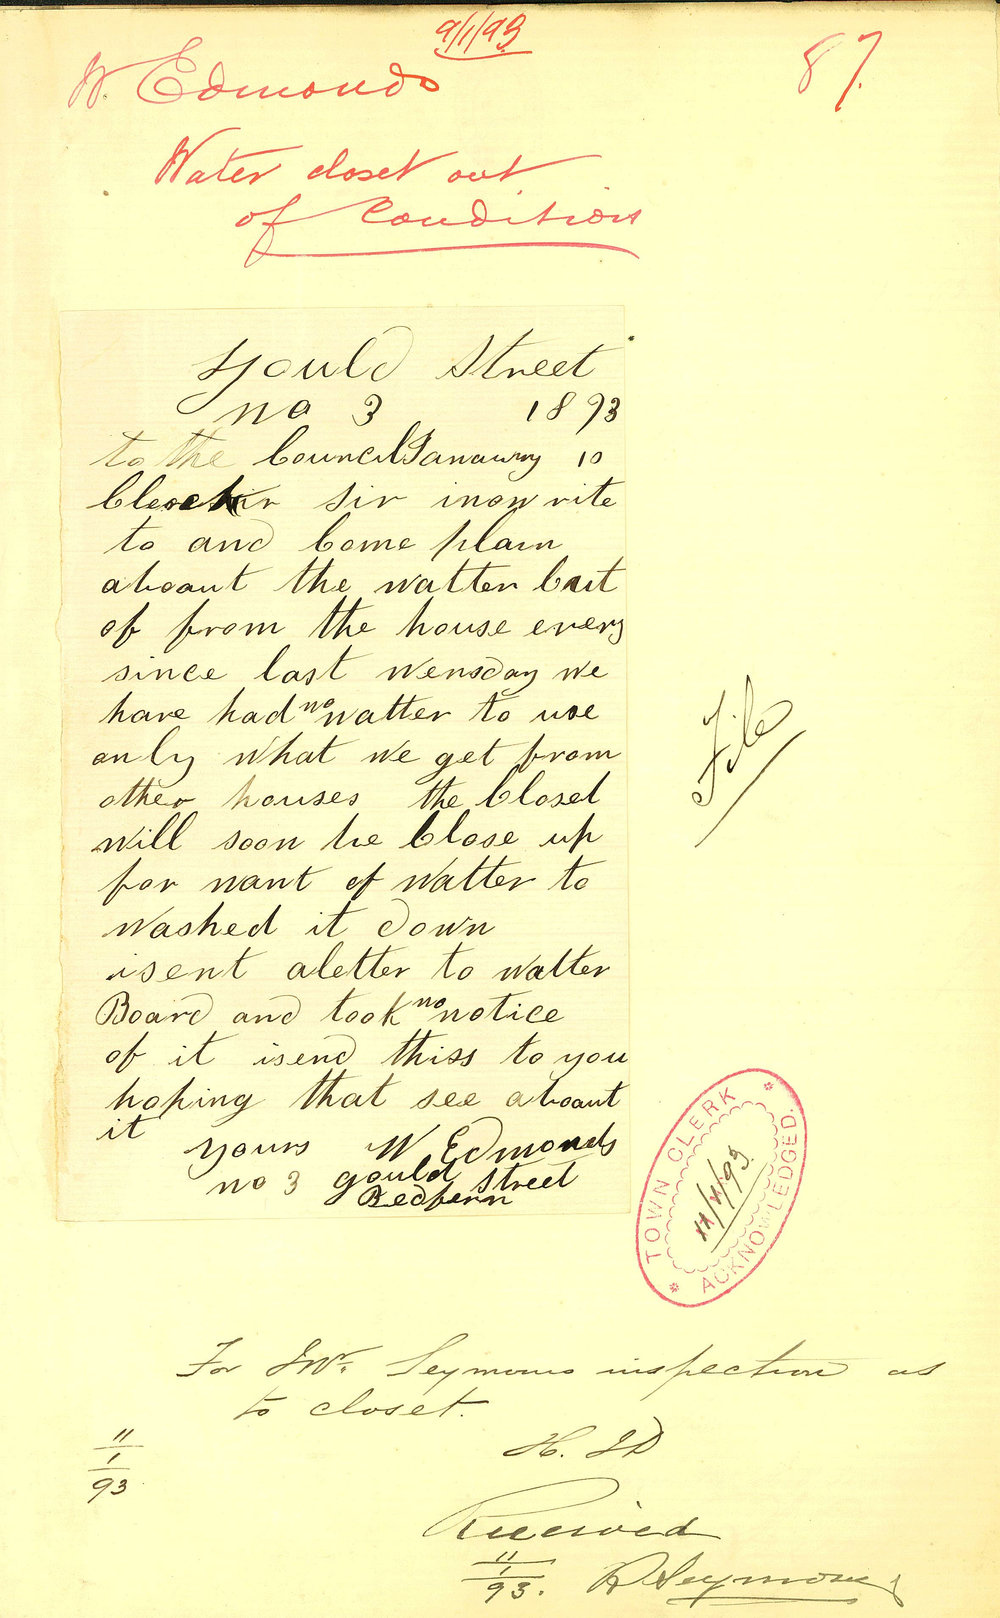 9/1/93
W. Edmonds
87.
Water closet out
of Condition
Gould Street
no 3 1893
to the Council Janauray 10
Clerck sir inow rite
to and Come plain
aboaut the watter Cut
of from the house every
since last Wensday we
have had no watter to use
only what we get from
other houses the Closet
will soon be Close up
for want of Watter to
Washed it down
isent aletter to watter
Board and took no notice
of it isend thiss to you
hoping that see aboaut
it
yours W Edmonds
no 3 gould street
Redfern
File
TOWN CLERK
ACKNOWLEDGED.
For Mr. Seymours inspection as
to closet.
11/1/93
H. D
Received
11/1/93. R Seymour